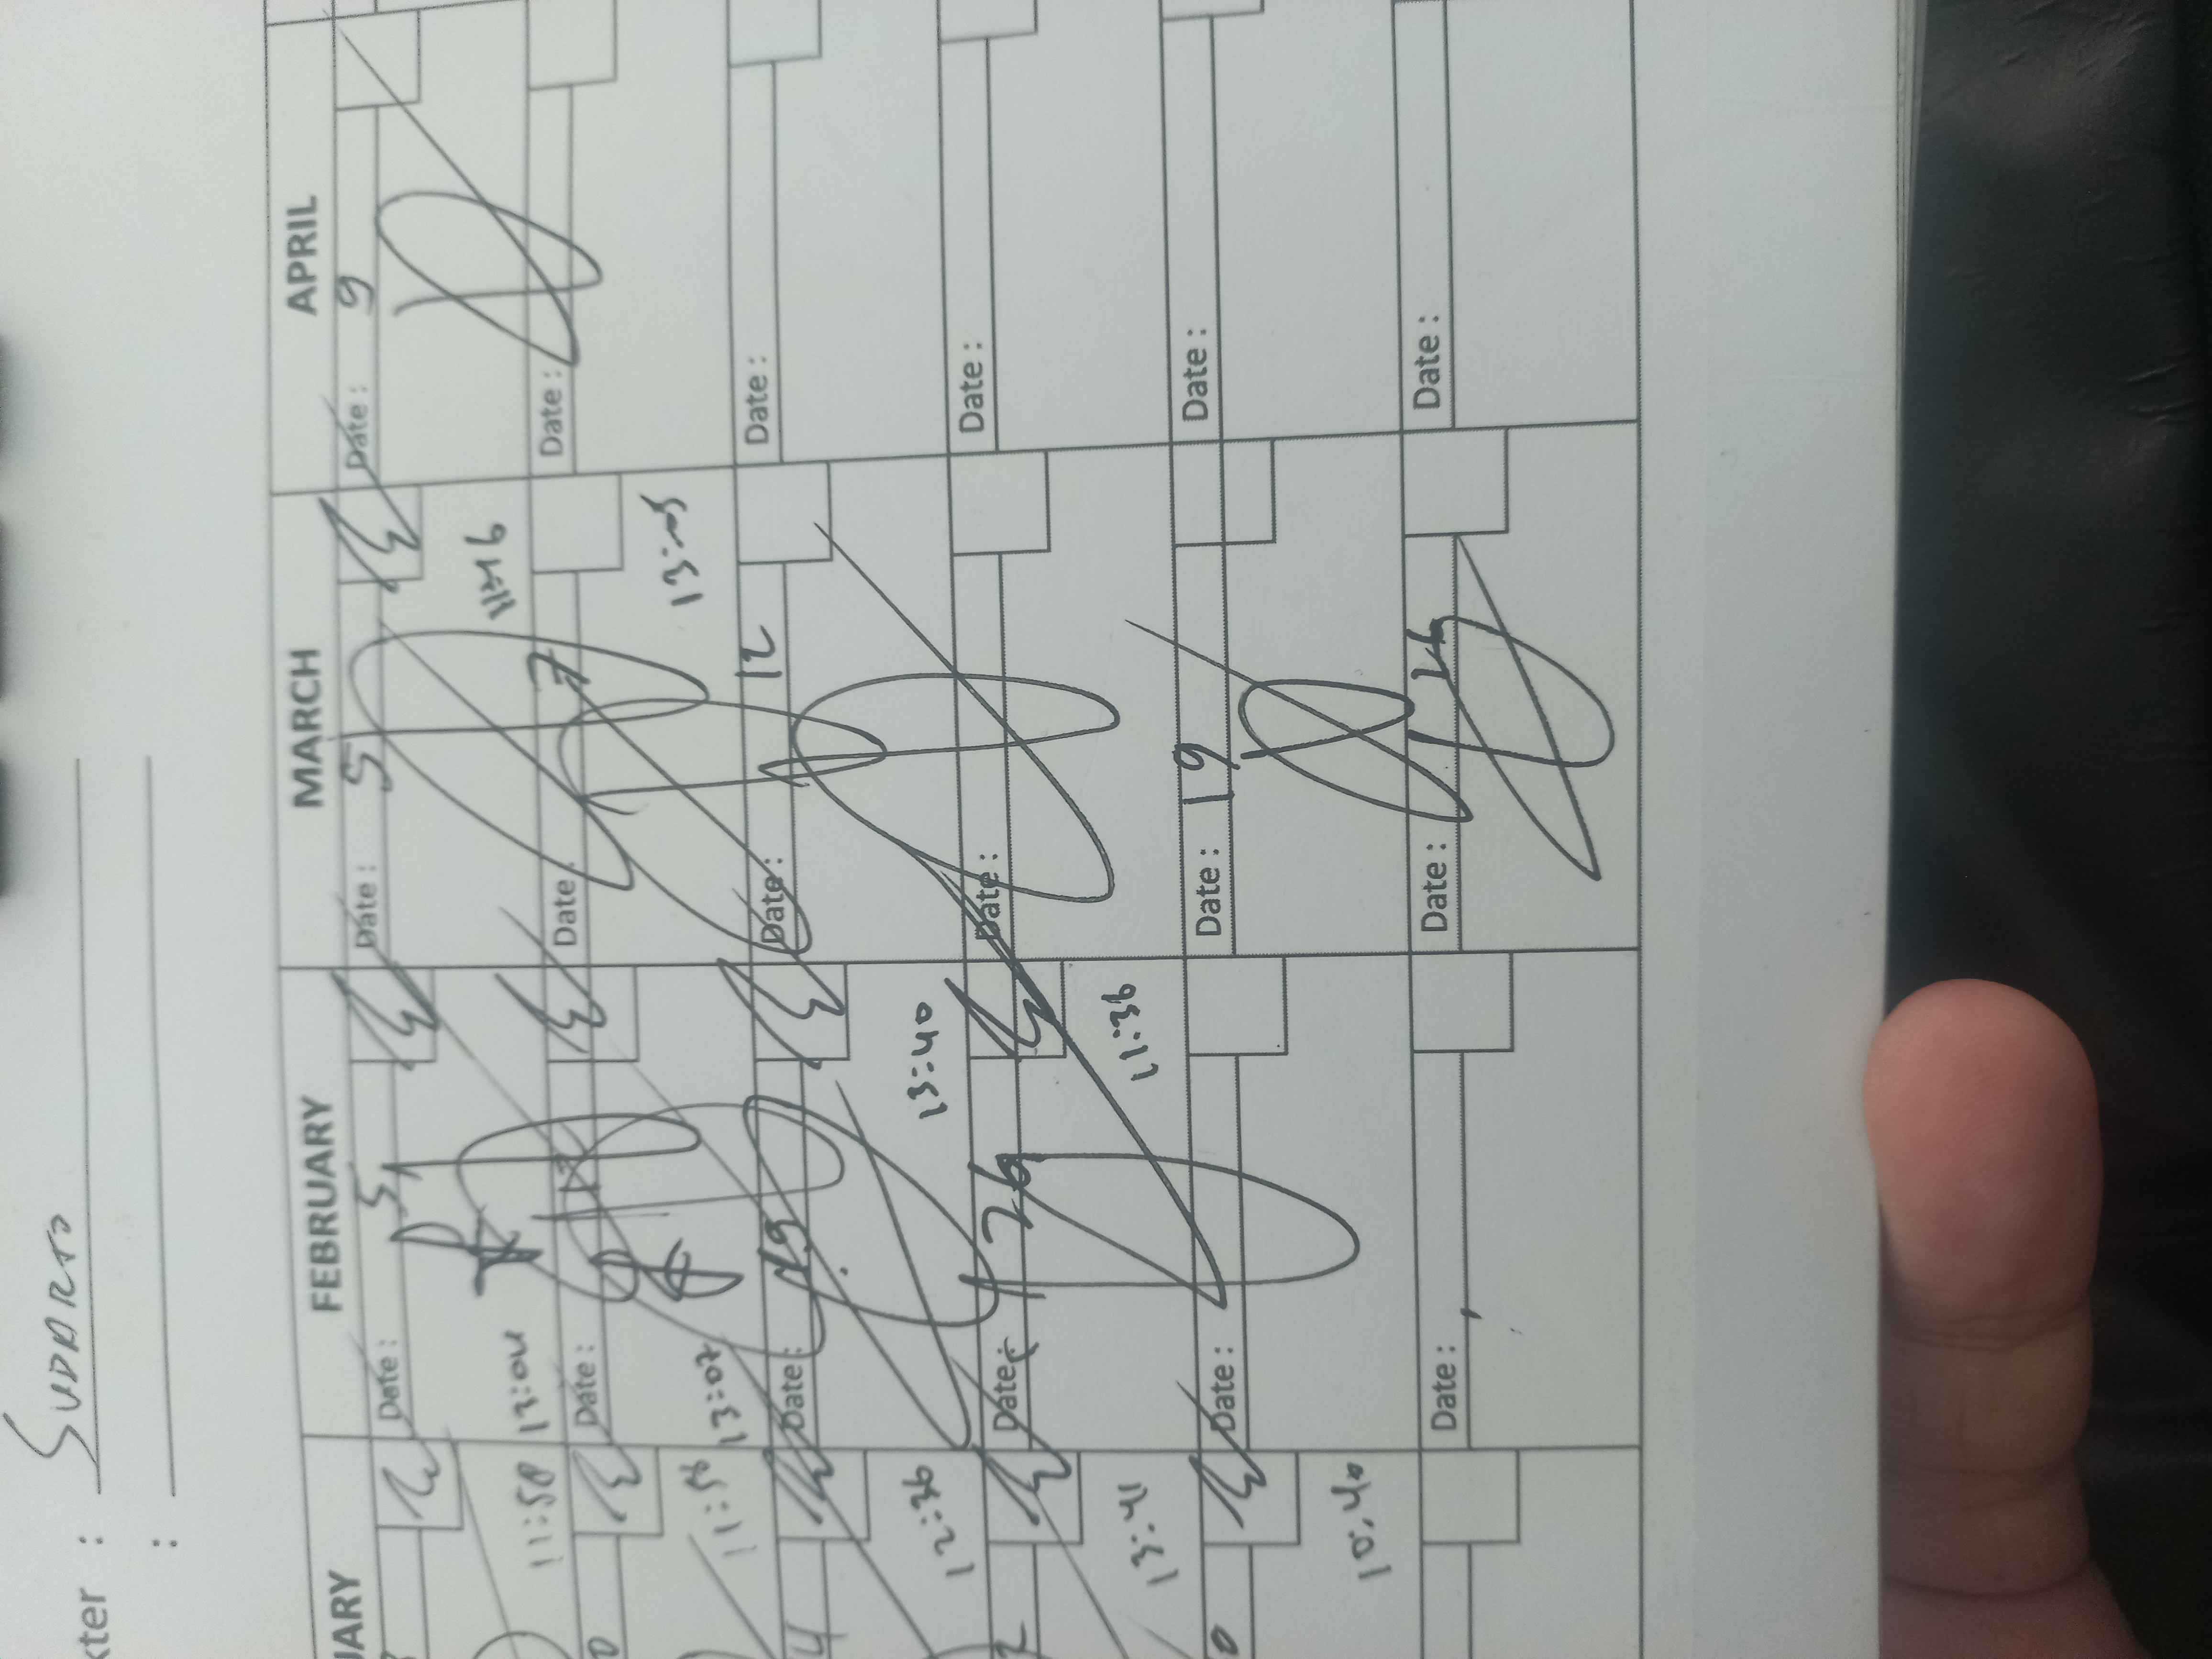 kter : SUDARTO
:
UARY FEBRUARY MARCH APRIL
Date : 5 Date : 5 Date : 9
11:58 13:04
0 Date : 12 Date 7 Date :
11:56 13:07 13:05
4 Date : 19 Date : 12 Date :
12:36 13:40
Date : 26 Date : Date :
13:41 11:36
0 Date : Date : 19 Date :
10.40
Date : Date : 26 Date :